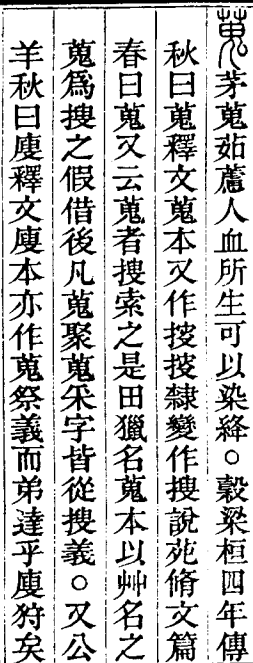 蒐茅蒐茹藘人血所生可以染絳○穀梁桓四年傳
秋曰蒐釋文蒐本又作挍挍隸變作搜說苑脩文篇
春曰蒐又云蒐者搜索之是田獵名蒐本以艸名之
蒐爲搜之假借後凡蒐聚蒐釆字皆從搜義○又公
羊秋曰廋釋文廋本亦作蒐祭義而弟達乎廋狩矣